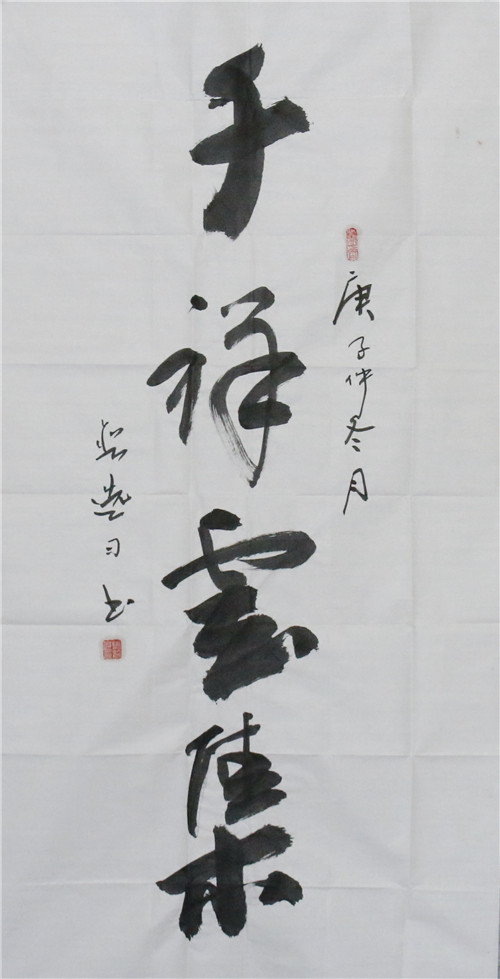 庚子仲冬月
千祥雲集
习书